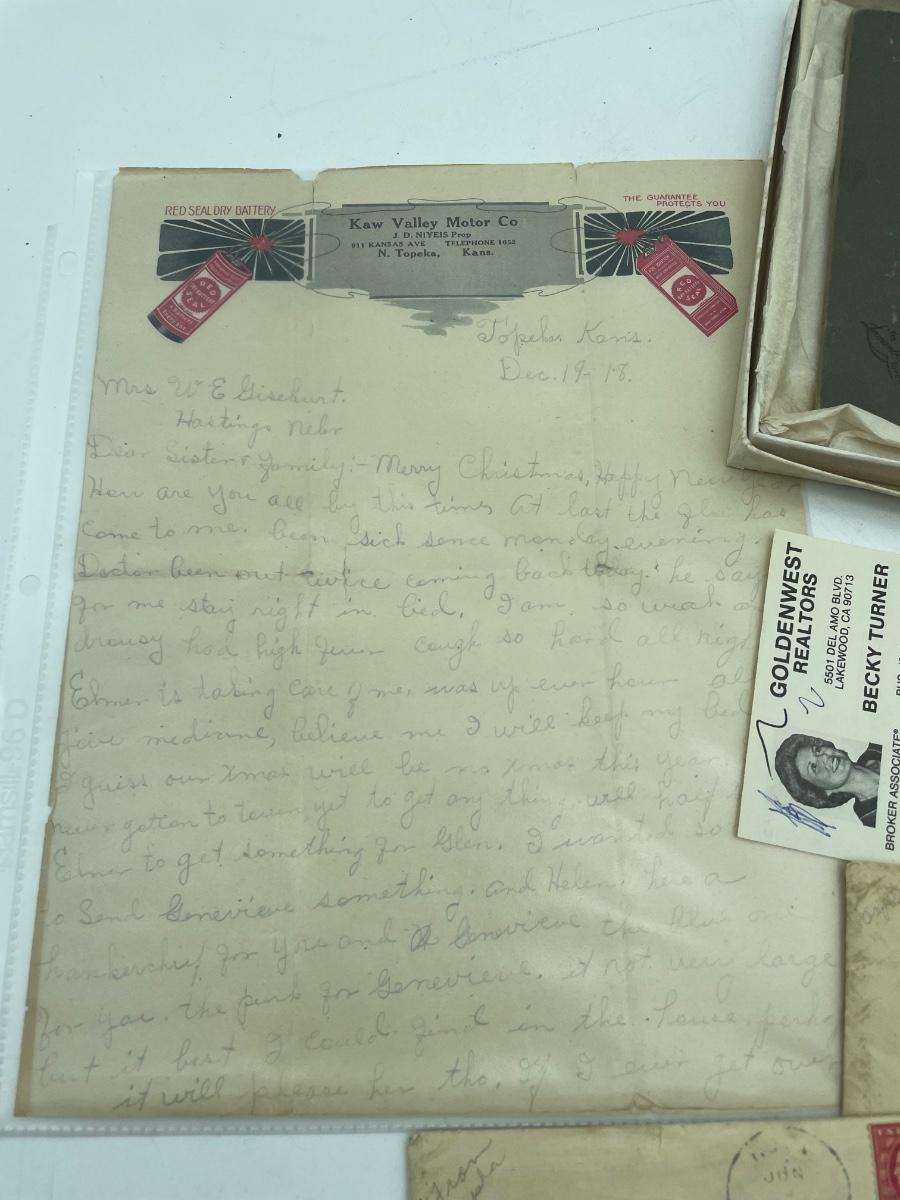 RED SEAL DRY BATTERY
THE GUARANTEE
PROTECTS YOU
Kaw Valley Motor Co
J. D. NIYEIS Prop
911 KANSAS AVE TELEPHONE 1652
N. Topeka, Kans.
RED
SEAL
RED
SEAL
Topeka Kans.
Dec. 19-18.
Mrs W E Giseburt.
Hastings Nebr
Dear Sister & family:- Merry Christmas, Happy New Year
How are you all by this time, At last the flu has
come to me. been sick sence monday evening.
Doctor been out twice coming back today. he say
for me stay right in bed, I am so weak an
drousy had high fever cough so hard all nigh
Elmer is taking care of me, was up ever hour al
give medicine, believe me I will keep my bed
I guess our Xmas will be no xmas this year.
never gotton to town yet to get any thing. will haft
Elmer to get something for Glen. I wanted so
to Send Genevieve something. and Helen. here a
hankerchief for you and Genevieve the blue one
for you. the pink for Genevieve. it not very large
but it best I could find in the house. perha
it will please her tho. If I ever get over
GOLDENWEST
REALTORS
5501 DEL AMO BLVD.
LAKEWOOD, CA 90713
BECKY TURNER
BROKER ASSOCIATE®